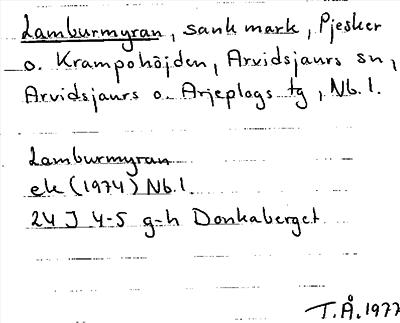 Lamburmyran, sank mark, Pjesker
o. Krampohöjden, Arvidsjaurs sn,
Arvidsjaurs o. Arjeplogs tg, Nb. l.
Lamburmyran
ek (1974) Nb. l.
24 J 4-5 g-h Donkaberget
T.Å. 1977